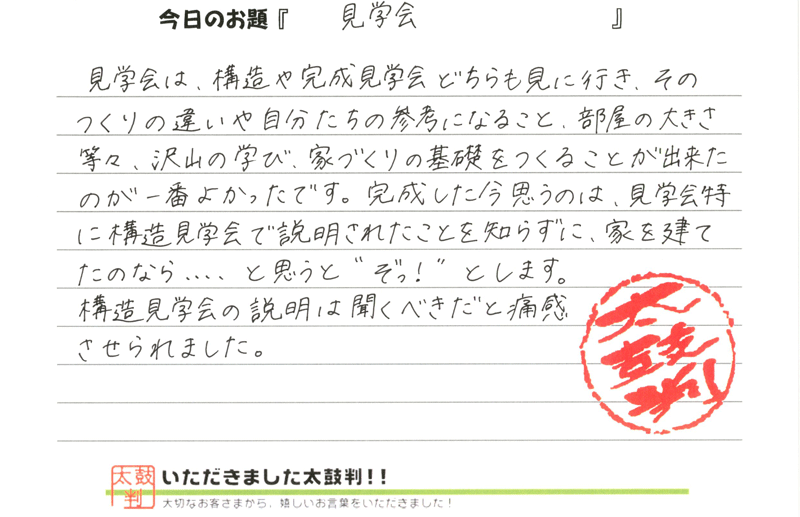 今日のお題『 見学会 』
見学会は、構造や完成見学会どちらも見に行き、その
つくりの違いや自分たちの参考になること、部屋の大きさ
等々、沢山の学び、家づくりの基礎をつくることが出来た
のが一番よかったです。完成した今思うのは、見学会特
に構造見学会で説明されたことを知らずに、家を建て
たのなら、、、、と思うと“ぞっ！”とします。
構造見学会の説明は聞くべきだと痛感
させられました。
太鼓判
太鼓判
いただきました太鼓判!!
大切なお客さまから、嬉しいお言葉をいただきました！